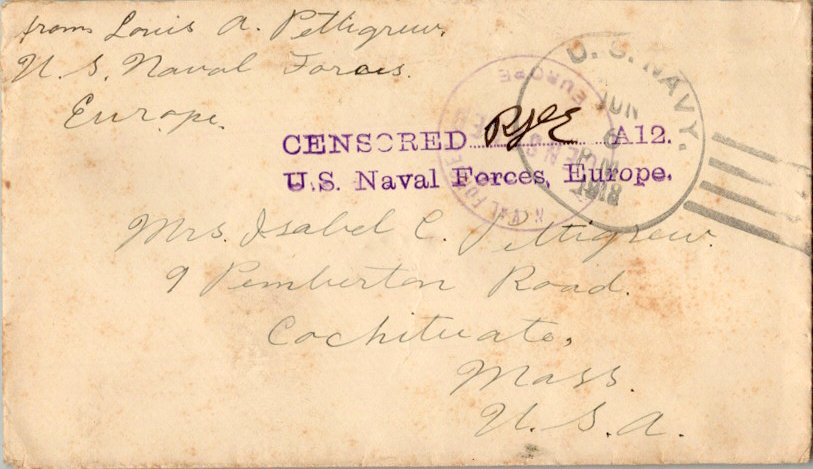 from Louis A. Pettigrew.
U.S. Naval Forces.
Europe.
CENSORED A12.
U.S. Naval Forces, Europe.
U. S. NAVY.
JUN
1918
NAVAL FORCES
EUROPE
Mrs. Isabel C. Pettigrew.
9 Pemberton Road.
Cochituate,
Mass.
U.S.A.